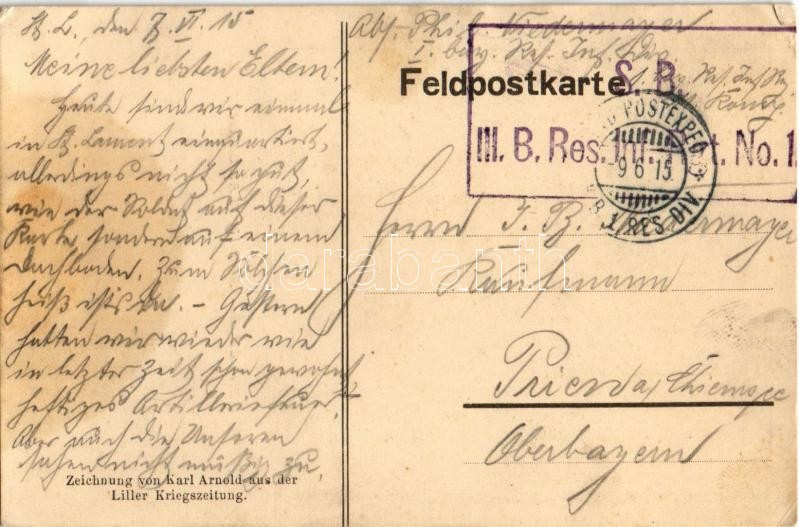 St. L., den 7. VI. 15
Meine liebsten Eltern!
Heute sind wir einmal
in St. Laurent einquartiert,
allerdings nicht so gut,
wie der Soldat auf dieser
Karte, sondern auf einem
Dachboden. Zum
heiß ist's da. – Gestern
hatten wir wieder wie
in letzter Zeit schon gewohnt
heftiges Artilleriefeuer.
Aber auch die Unseren
sahen nicht müßig zu.
Zeichnung von Karl Arnold aus der
Liller Kriegszeitung.
Abs. Phil. Niedermayer
I. bay. Res. Inf. Div.
1. bay. Res. Inf. Rg.
Feldpostkarte
S. B.
III. B. Res. Inf. Rgt. No. 1.
POSTEXPED
9 6 15
B. 1 RES-DIV.
Herrn J. B. Niedermayer
Kaufmann
Prien a/Chiemsee
Oberbayern
darabanth